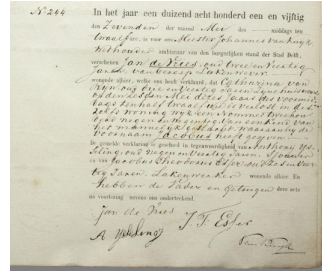 No 244
In het jaar een duizend acht honderd een en vijftig
den Zevenden der maand Mei des middags ten
twaalf ure, is voor ons Meester Johannes van Kuyk
Wethouder ambtenaar van den burgerlijken stand der Stad Delft,
verschenen Jan de Vries, oud twee en veertig
Jaren, van beroep Lakenwever
wonende alhier, welke ons heeft verklaard, dat Catharina van
Rijn, oud drie en veertig Jaren, zijne huisvrouw
op den zesden Mei dezes jaars des voormid
dags ten half twaalf ure is verlost in des
zelfs woning wijk een Nommer twee hon
derd negen en negentig van een kind van
het mannelijk geslacht, waaraan hij de
voornaam Jacobus heeft gegeven
In gemelde verklaring is geschied in tegenwoordigheid van Anthony Ys
seling, oud negen en veertig Jaren,
en van Jacobus Theodorus Esser, oud zes en veer
tig Jaren, Lakenwerker wonende alhier. En
hebben de Vader en Getuigen deze acte
na voorlezing nevens ons onderteekend.
Jan de Vries
J. T. Esser
A Ysseling